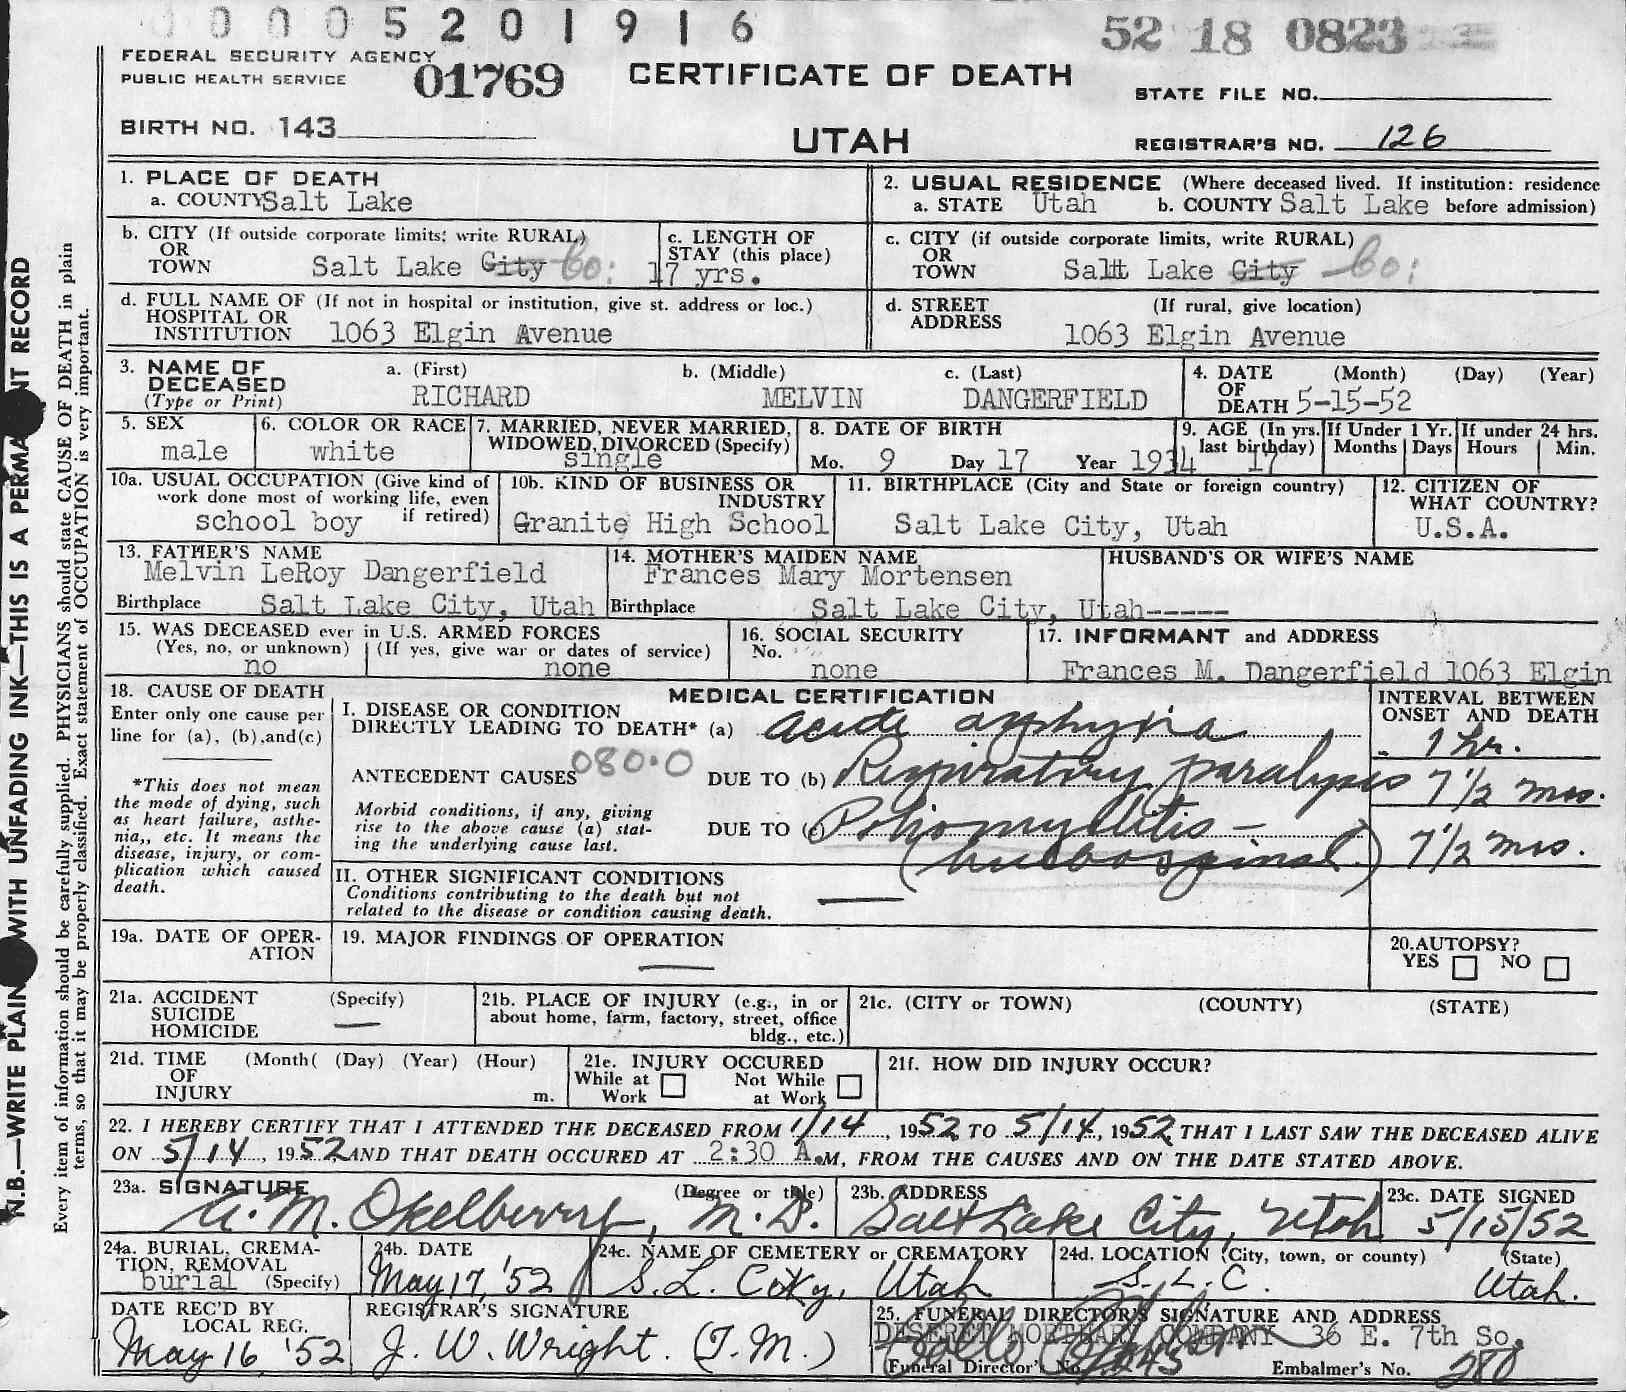 0005201916
52 18 0823
FEDERAL SECURITY AGENCY
PUBLIC HEALTH SERVICE
01769
CERTIFICATE OF DEATH
STATE FILE NO.
BIRTH NO. 143
UTAH
REGISTRAR'S NO. 126
1. PLACE OF DEATH
a. COUNTY Salt Lake
2. USUAL RESIDENCE (Where deceased lived. If institution: residence
a. STATE Utah b. COUNTY Salt Lake before admission)
b. CITY (If outside corporate limits; write RURAL)
OR
TOWN Salt Lake City Co:
c. LENGTH OF
STAY (this place)
17 yrs.
c. CITY (if outside corporate limits, write RURAL)
OR
TOWN Salt Lake City Co:
d. FULL NAME OF (If not in hospital or institution, give st. address or loc.)
HOSPITAL OR
INSTITUTION 1063 Elgin Avenue
d. STREET (If rural, give location)
ADDRESS
1063 Elgin Avenue
3. NAME OF
DECEASED
(Type or Print)
a. (First) b. (Middle) c. (Last)
RICHARD MELVIN DANGERFIELD
4. DATE (Month) (Day) (Year)
OF
DEATH 5-15-52
5. SEX
male
6. COLOR OR RACE
white
7. MARRIED, NEVER MARRIED,
WIDOWED, DIVORCED (Specify)
single
8. DATE OF BIRTH
Mo. 9 Day 17 Year 1934
9. AGE (In yrs.
last birthday)
17
If Under 1 Yr.
Months Days
If under 24 hrs.
Hours Min.
10a. USUAL OCCUPATION (Give kind of
work done most of working life, even
if retired)
school boy
10b. KIND OF BUSINESS OR
INDUSTRY
Granite High School
11. BIRTHPLACE (City and State or foreign country)
Salt Lake City, Utah
12. CITIZEN OF
WHAT COUNTRY?
U.S.A.
13. FATHER'S NAME
Melvin LeRoy Dangerfield
Birthplace Salt Lake City, Utah
14. MOTHER'S MAIDEN NAME
Frances Mary Mortensen
Birthplace Salt Lake City, Utah
HUSBAND'S OR WIFE'S NAME
-----
15. WAS DECEASED ever in U.S. ARMED FORCES
(Yes, no, or unknown) (If yes, give war or dates of service)
no none
16. SOCIAL SECURITY
No.
none
17. INFORMANT and ADDRESS
Frances M. Dangerfield 1063 Elgin
18. CAUSE OF DEATH
Enter only one cause per
line for (a), (b), and (c)
*This does not mean
the mode of dying, such
as heart failure, asthe-
nia,, etc. It means the
disease, injury, or com-
plication which caused
death.
MEDICAL CERTIFICATION
INTERVAL BETWEEN
ONSET AND DEATH
I. DISEASE OR CONDITION
DIRECTLY LEADING TO DEATH* (a) Acute asphyxia
1 hr.
080.0
ANTECEDENT CAUSES DUE TO (b) Respiratory paralysis
7 1/2 mos.
Morbid conditions, if any, giving
rise to the above cause (a) stat-
ing the underlying cause last.
DUE TO (c) Poliomyelitis -
(bulbospinal.)
7 1/2 mos.
II. OTHER SIGNIFICANT CONDITIONS
Conditions contributing to the death but not
related to the disease or condition causing death.
19a. DATE OF OPER-
ATION
19. MAJOR FINDINGS OF OPERATION
20. AUTOPSY?
YES NO
21a. ACCIDENT (Specify)
SUICIDE
HOMICIDE
21b. PLACE OF INJURY (e.g., in or
about home, farm, factory, street, office
bldg., etc.)
21c. (CITY or TOWN) (COUNTY) (STATE)
21d. TIME (Month( (Day) (Year) (Hour)
OF
INJURY m.
21e. INJURY OCCURED
While at Work
Not While at Work
21f. HOW DID INJURY OCCUR?
22. I HEREBY CERTIFY THAT I ATTENDED THE DECEASED FROM 1/14, 1952 TO 5/14, 1952 THAT I LAST SAW THE DECEASED ALIVE
ON 5/14, 1952, AND THAT DEATH OCCURED AT 2:30 A.M, FROM THE CAUSES AND ON THE DATE STATED ABOVE.
23a. SIGNATURE (Degree or title)
A. M. Okelberry, M.D.
23b. ADDRESS
Salt Lake City, Utah
23c. DATE SIGNED
5/15/52
24a. BURIAL, CREMA-
TION, REMOVAL
burial (Specify)
24b. DATE
May 17, '52
24c. NAME OF CEMETERY or CREMATORY
S. L. City, Utah
24d. LOCATION (City, town, or county) (State)
S. L. C. Utah.
DATE REC'D BY
LOCAL REG.
May 16, '52
REGISTRAR'S SIGNATURE
J. W. Wright. (T.M.)
25. FUNERAL DIRECTOR'S SIGNATURE AND ADDRESS
DESERET MORTUARY COMPANY 36 E. 7th So.
(Funeral Director's No.
Embalmer's No. 280
N.B.—WRITE PLAIN WITH UNFADING INK—THIS IS A PERMANENT RECORD
Every item of information should be carefully supplied. PHYSICIANS should state CAUSE OF DEATH in plain
terms, so that it may be properly classified. Exact statement of OCCUPATION is very important.